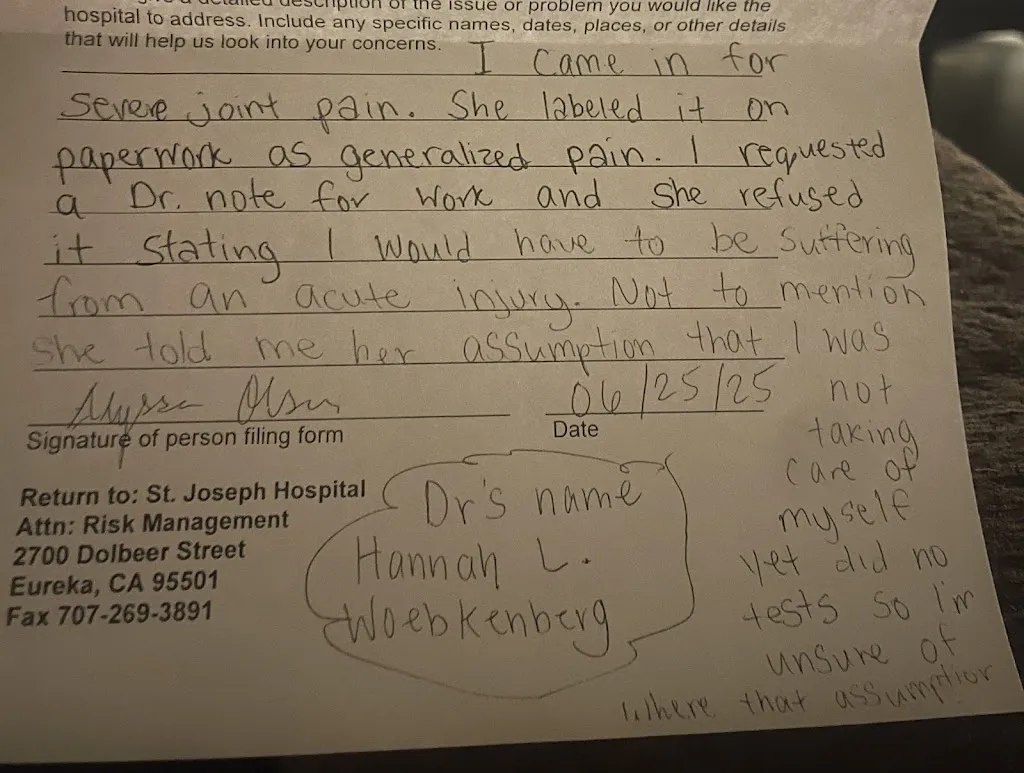 detailed description of the issue or problem you would like the
hospital to address. Include any specific names, dates, places, or other details
that will help us look into your concerns.
I came in for
severe joint pain. She labeled it on
paperwork as generalized pain. I requested
a Dr. note for work and she refused
it stating I would have to be suffering
from an acute injury. Not to mention
she told me her assumption that I was
not
taking
care of
myself
yet did no
tests so I'm
unsure of
where that assumption
Alyssa Olsen
06/25/25
Signature of person filing form
Date
Return to: St. Joseph Hospital
Attn: Risk Management
2700 Dolbeer Street
Eureka, CA 95501
Fax 707-269-3891
Dr's name
Hannah L.
Woebkenberg